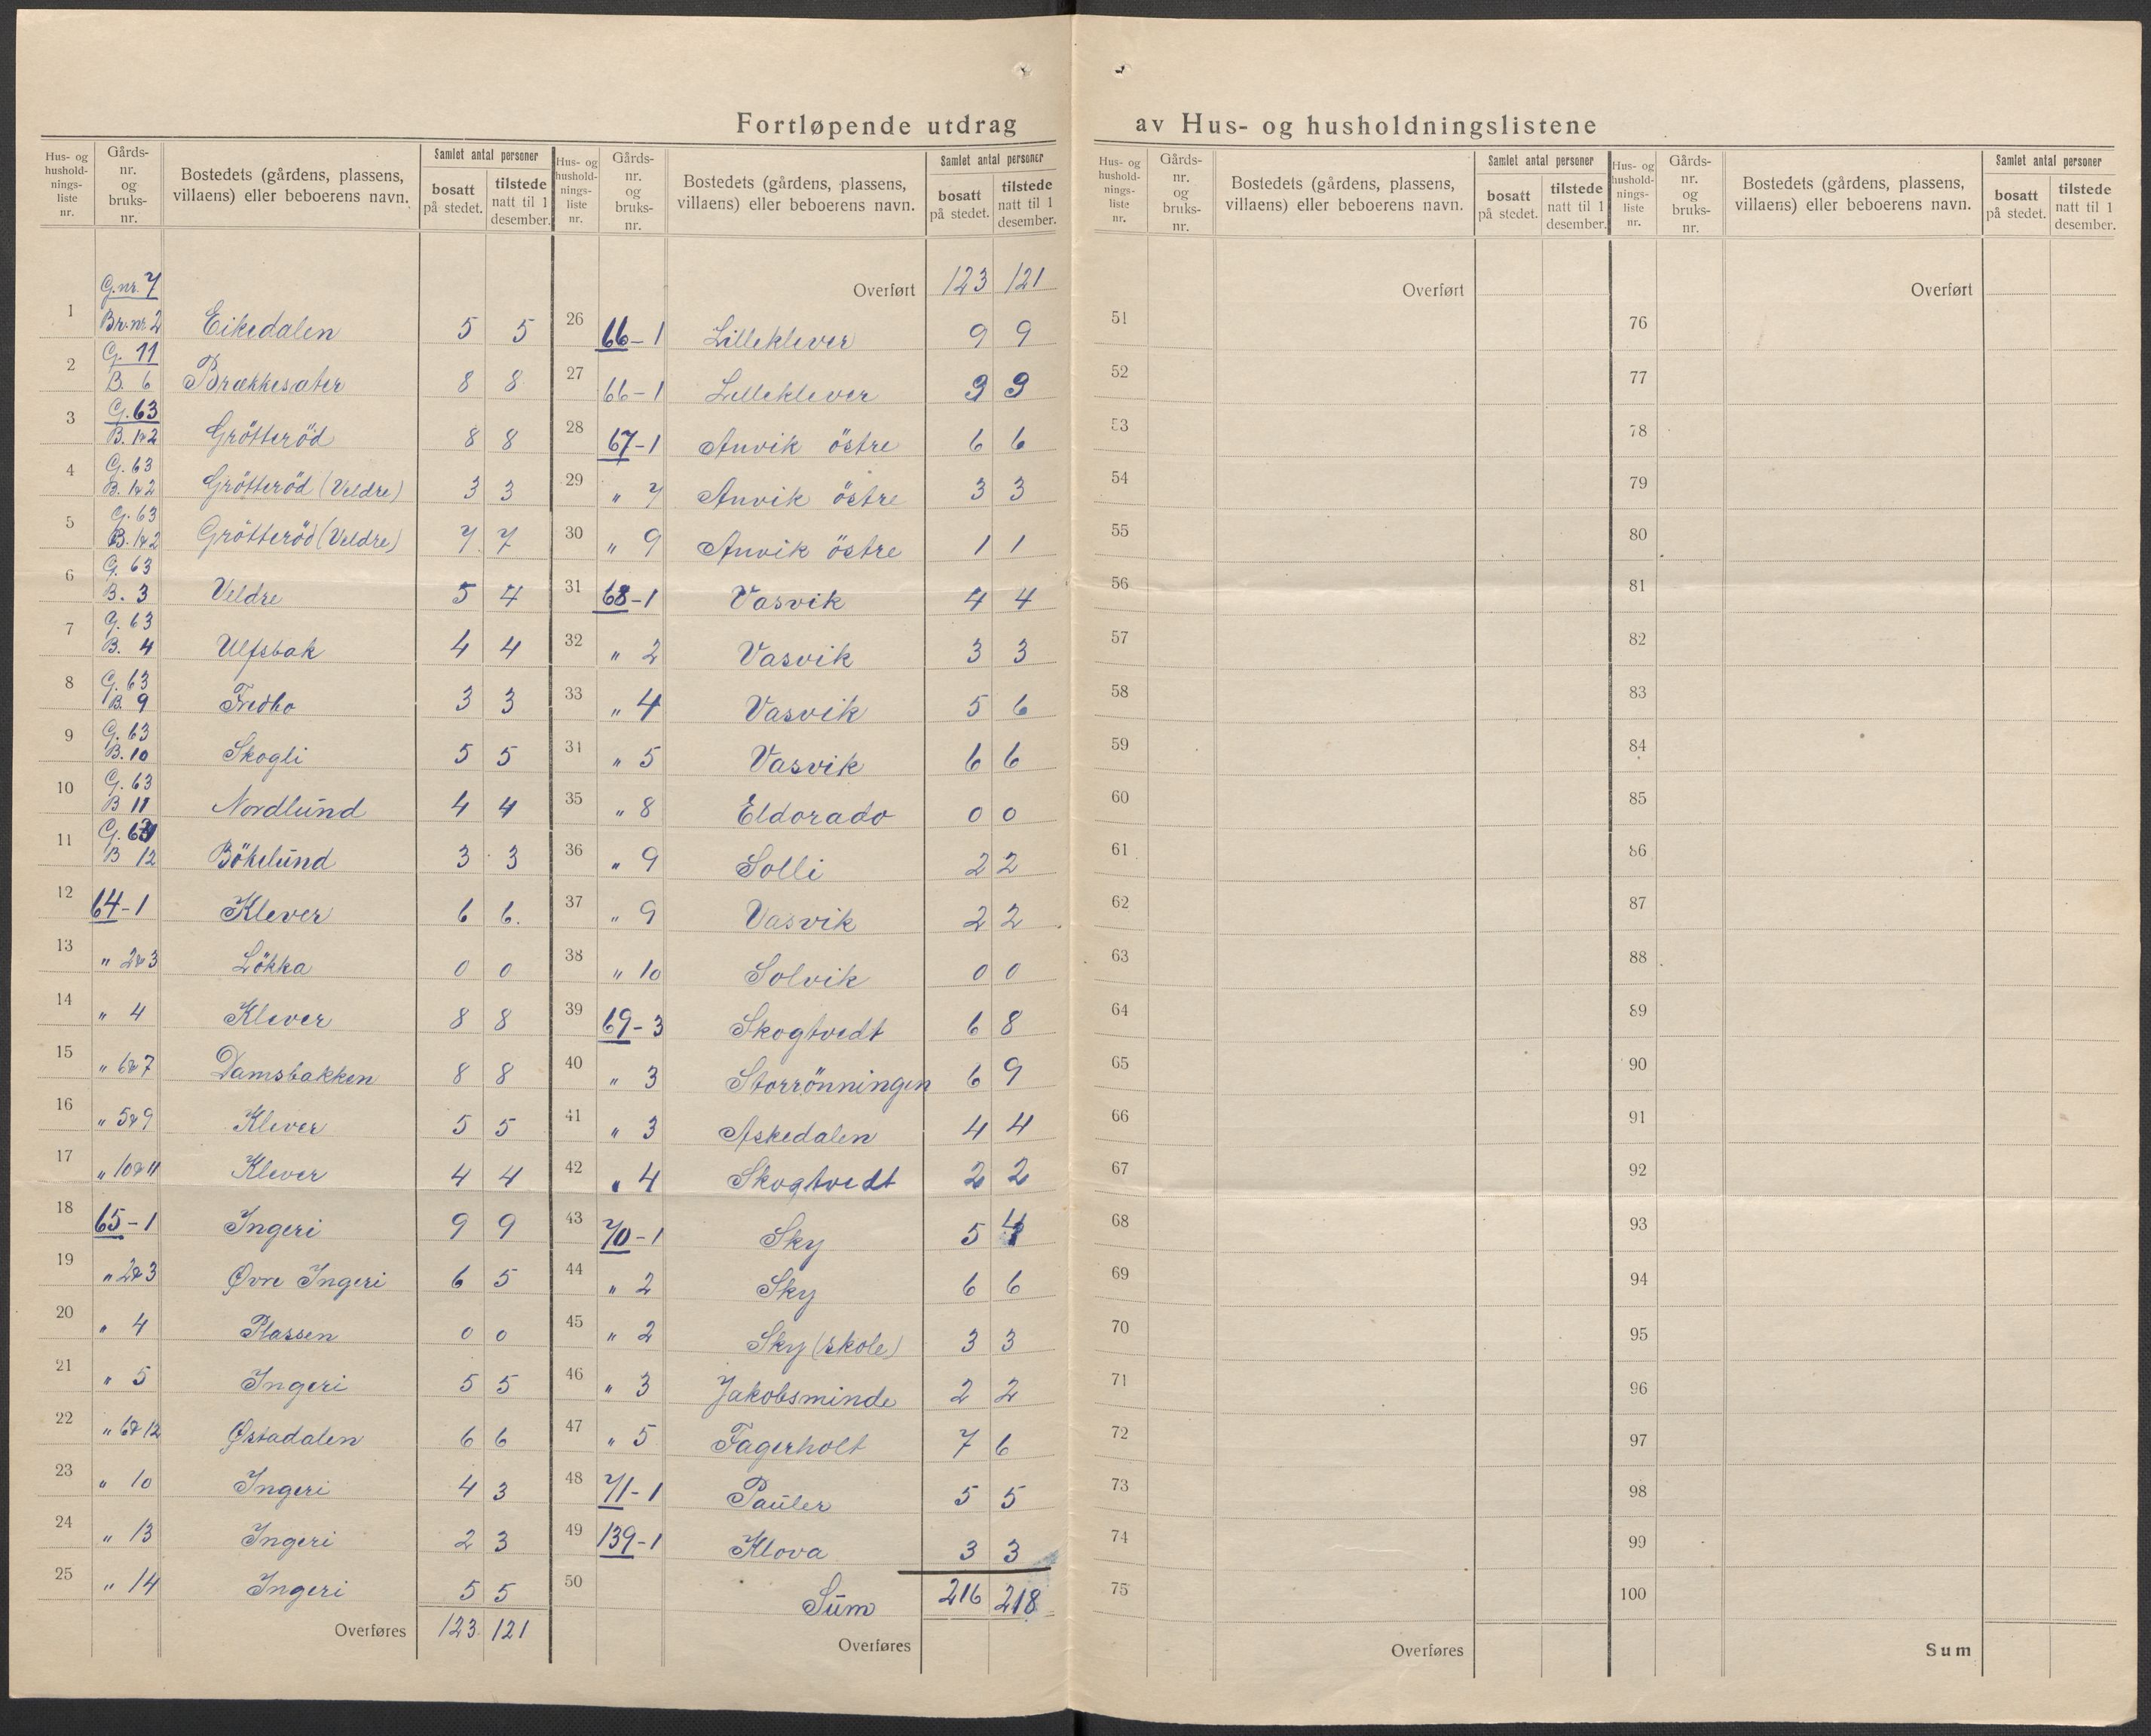 Fortløpende utdrag av Hus- og husholdningslistene
Hus- og husholdnings-liste nr. Gårds-nr. og bruks-nr. Bostedets (gårdens, plassens, villaens) eller beboerens navn. Samlet antal personer bosatt på stedet. tilstede natt til 1 desember.
1 G.nr. 7 Br.nr. 2 Eikedalen 5 5
2 G. 11 B. 6 Brækkesæter 8 8
3 G. 63 B. 1&2 Grötteröd 8 8
4 G. 63 B. 1&2 Grötteröd (Veldre) 3 3
5 G. 63 B. 1&2 Grötteröd (Veldre) 7 7
6 G. 63 B. 3 Veldre 5 4
7 G. 63 B. 4 Ulfsbak 4 4
8 G. 63 B. 9 Fredho 3 3
9 G. 63 B. 10 Skogli 5 5
10 G. 63 B 11 Nordlund 4 4
11 G. 63 B 12 Bökelund 3 3
12 64-1 Klever 6 6.
13 " 2&3 Lökka 0 0
14 " 4 Klever 8 8
15 " 6&7 Damsbakken 8 8
16 " 5&9 Klever 5 5
17 " 10&11 Klever 4 4
18 65-1 Ingeri 9 9
19 " 2&3 Øvre Ingeri 6 5
20 " 4 Plassen 0 0
21 " 5 Ingeri 5 5
22 " 6&12 Østadalen 6 6
23 " 10 Ingeri 4 3
24 " 13 Ingeri 2 3
25 " 14 Ingeri 5 5
Overføres 123 121
Hus- og husholdnings-liste nr. Gårds-nr. og bruks-nr. Bostedets (gårdens, plassens, villaens) eller beboerens navn. Samlet antal personer bosatt på stedet. tilstede natt til 1 desember.
Overført 123 121
26 66-1 Lilleklever 9 9
27 66-1 Lilleklever 9 9
28 67-1 Anvik östre 6 6
29 " 7 Anvik östre 3 3
30 " 9 Anvik östre 1 1
31 68-1 Vasvik 4 4
32 " 2 Vasvik 3 3
33 " 4 Vasvik 5 6
34 " 5 Vasvik 6 6
35 " 8 Eldorado 0 0
36 " 9 Solli 2 2
37 " 9 Vasvik 2 2
38 " 10 Solvik 0 0
39 69-3 Skogtvedt 6 8
40 " 3 Storrönningen 6 9
41 " 3 Askedalen 4 4
42 " 4 Skogtvedt 2 2
43 70-1 Sky 5 4
44 " 2 Sky 6 6
45 " 2 Sky (skole) 3 3
46 " 3 Jakobsminde 2 2
47 " 5 Fagerholt 7 6
48 71-1 Pauler 5 5
49 139-1 Klova 3 3
50 Sum 216 218
Overføres
Hus- og husholdnings-liste nr. Gårds-nr. og bruks-nr. Bostedets (gårdens, plassens, villaens) eller beboerens navn. Samlet antal personer bosatt på stedet. tilstede natt til 1 desember.
Overført
51
52
53
54
55
56
57
58
59
60
61
62
63
64
65
66
67
68
69
70
71
72
73
74
75
Overføres
Hus- og husholdnings-liste nr. Gårds-nr. og bruks-nr. Bostedets (gårdens, plassens, villaens) eller beboerens navn. Samlet antal personer bosatt på stedet. tilstede natt til 1 desember.
Overført
76
77
78
79
80
81
82
83
84
85
86
87
88
89
90
91
92
93
94
95
96
97
98
99
100
Sum